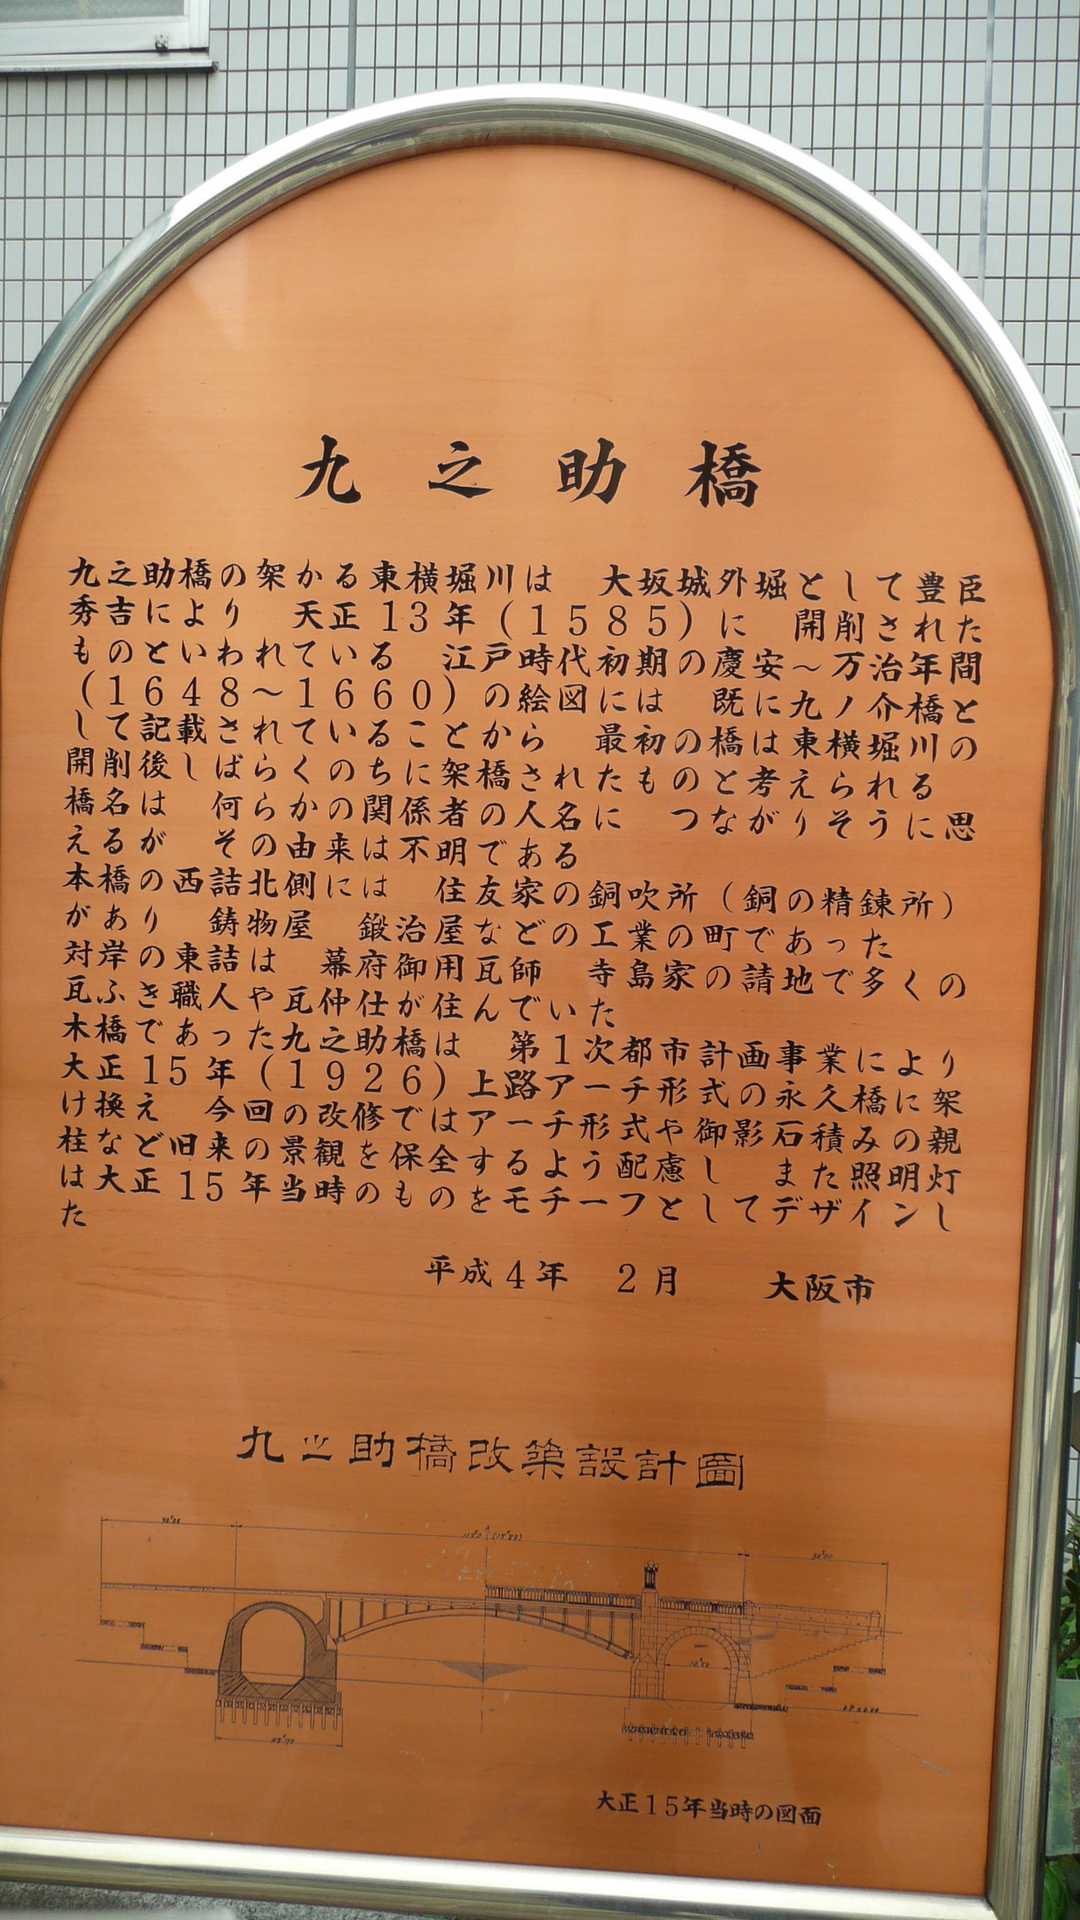 九之助橋
九之助橋の架かる東横堀川は　大坂城外堀として豊臣
秀吉により　天正13年（1585）に　開削された
ものといわれている　江戸時代初期の慶安～万治年間
（1648～1660）の絵図には　既に九ノ介橋と
して記載されていることから　最初の橋は東横堀川の
開削後しばらくのちに架橋されたものと考えられる
橋名は　何らかの関係者の人名に　つながりそうに思
えるが　その由来は不明である
本橋の西詰北側には　住友家の銅吹所（銅の精錬所）
があり　鋳物屋　鍛治屋などの工業の町であった
対岸の東詰は　幕府御用瓦師　寺島家の請地で多くの
瓦ふき職人や瓦仲仕が住んでいた
木橋であった九之助橋は　第1次都市計画事業により
大正15年（1926）上路アーチ形式の永久橋に架
け換え　今回の改修ではアーチ形式や御影石積みの親
柱など旧来の景観を保全するよう配慮し　また照明灯
は大正15年当時のものをモチーフとしてデザインし
た
平成4年　2月　大阪市
九之助橋改築設計圖
大正15年当時の図面